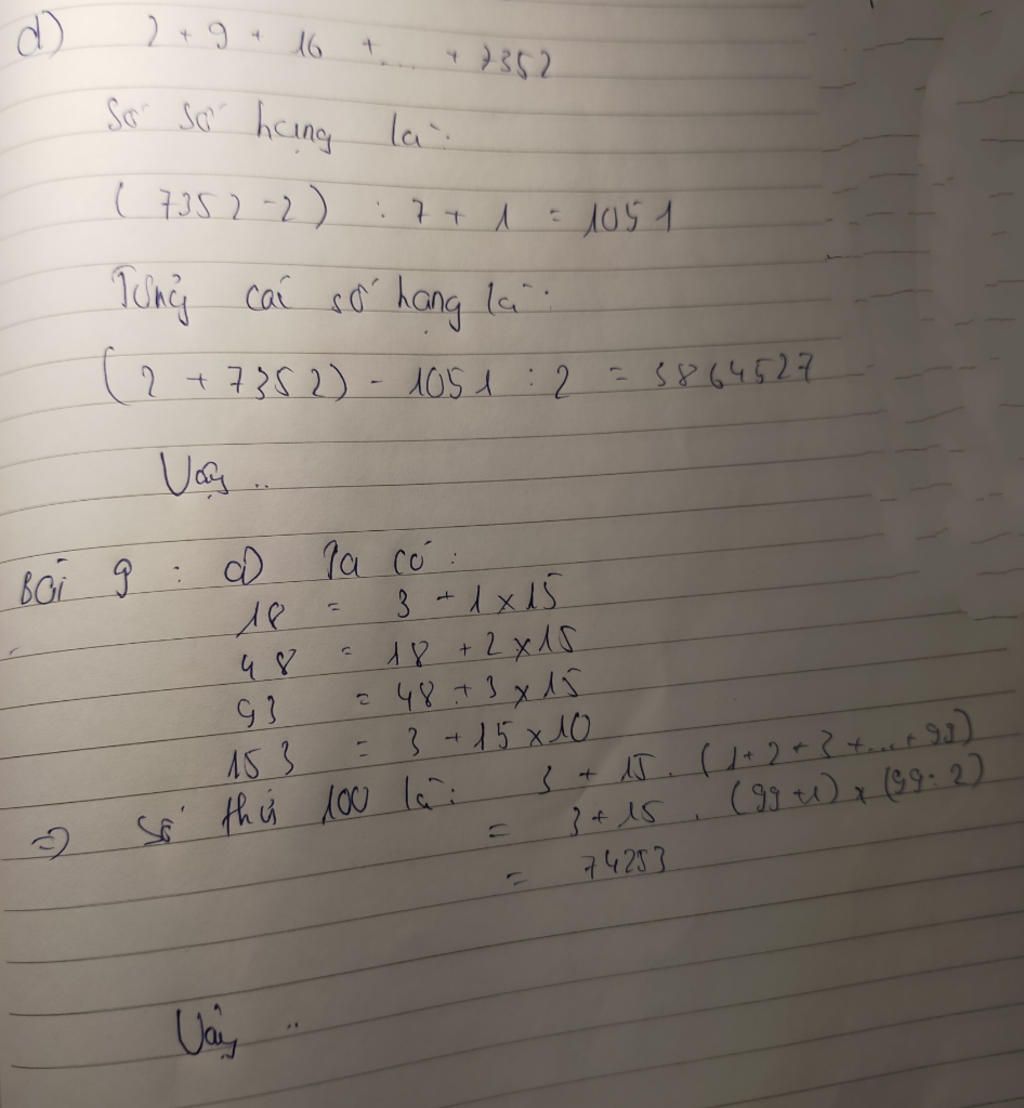 d) 2 + 9 + 16 + ... + 7352
Số số hạng là:
( 7352 - 2 ) : 7 + 1 = 1051
Tổng cái số hạng là:
( 2 + 7352 ) - 1051 : 2 = 3864527
Vậy ..
Bài 9 : d) Ta có :
18 = 3 + 1 x 15
48 = 18 + 2 x 15
93 = 48 + 3 x 15
153 = 3 + 15 x 10
=> Số thứ 100 là: 3 + 15 . (1 + 2 + 3 + ... + 99)
= 3 + 15 . (99 + 1) x (99 : 2)
= 74253
Vậy ..